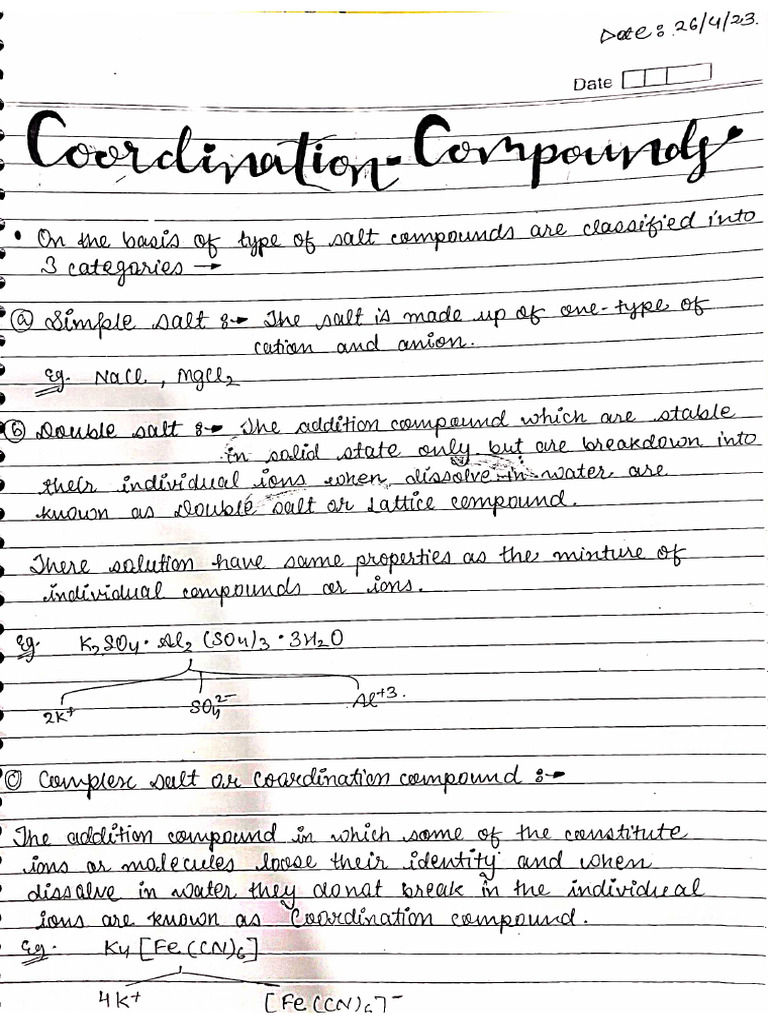 Date: 26/4/23.
Date
Coordination-Compounds
• On the basis of type of salt compounds are classified into
3 categories →
(a) Simple salt :- The salt is made up of one-type of
cation and anion.
Eg. NaCl, MgCl₂
(b) Double salt :- The addition compound which are stable
in solid state only but are breakdown into
their individual ions when dissolve in water are
known as Double salt or Lattice compound.
There solution have same properties as the minture of
individual compounds or ions.
Eg. K₂SO₄·Al₂(SO₄)₃·3H₂O
2K⁺ SO₄²⁻ Al⁺³.
(c) Complex salt or coordination compound :-
The addition compound in which some of the constitute
ions or molecules loose their identity and when
dissolve in water they donot break in the individual
ions are known as Coordination compound.
Eg. K₄[Fe(CN)₆]
4K⁺ [Fe(CN)₆]⁻